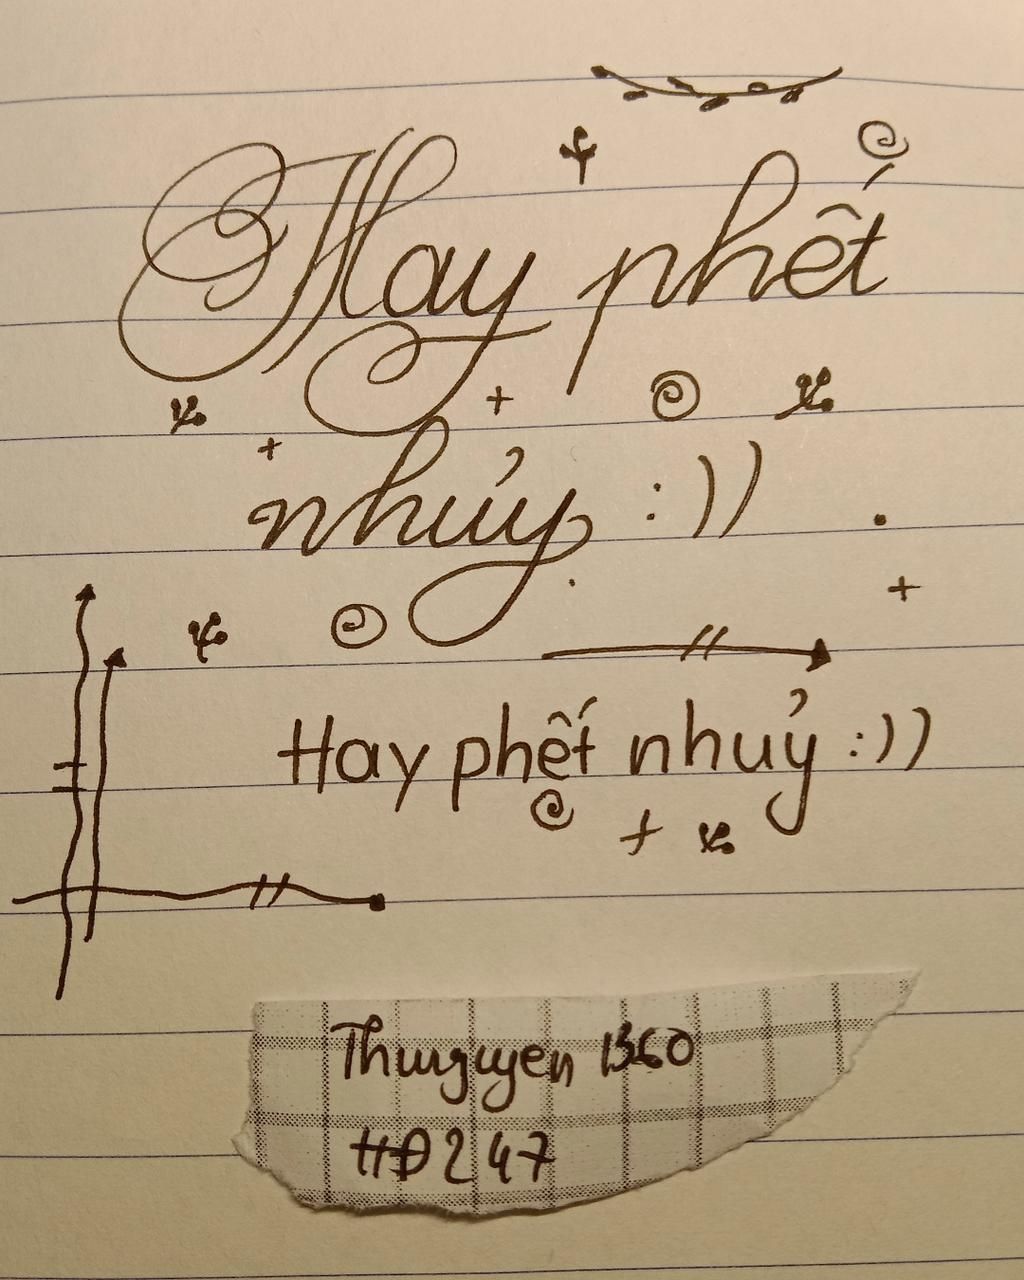 Hay phết
nhủy :))
Hay phết nhuỷ :))
Thunguyen 1360
HĐ247